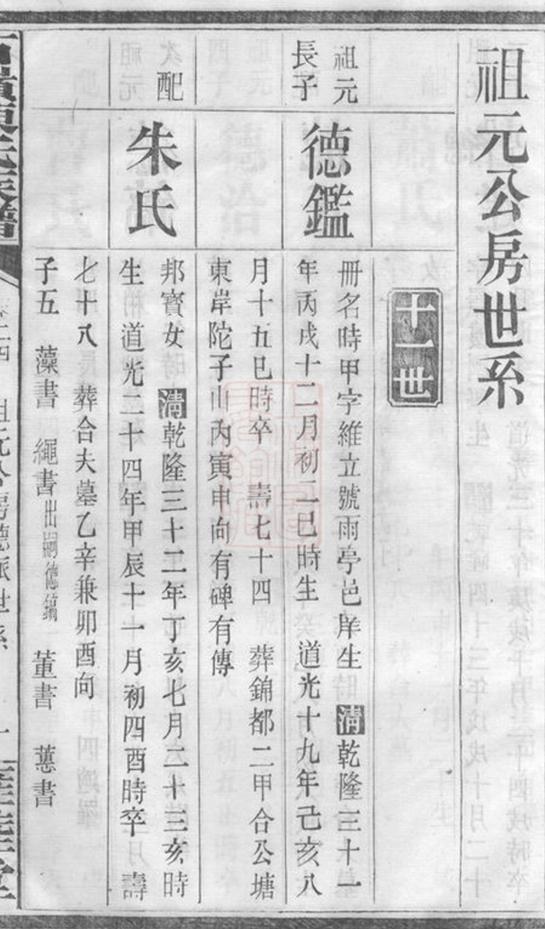 祖元公房世系
十一世
祖元
長子
德鑑
冊名時甲字維立號雨亭邑庠生 清乾隆三十一
年丙戌十二月初一巳時生 道光十九年己亥八
月十五巳時卒 壽七十四 葬錦都二甲合公塘
東岸陀子山丙寅申向有碑有傳
次配
朱氏
邦寶女 清乾隆三十二年丁亥七月二十三亥時
生 道光二十四年甲辰十一月初四酉時卒 壽
七十八 葬合夫墓乙辛兼卯酉向
子五 藻書 繩書出嗣德鎬 董書 蕙書
祖元公房德派世系